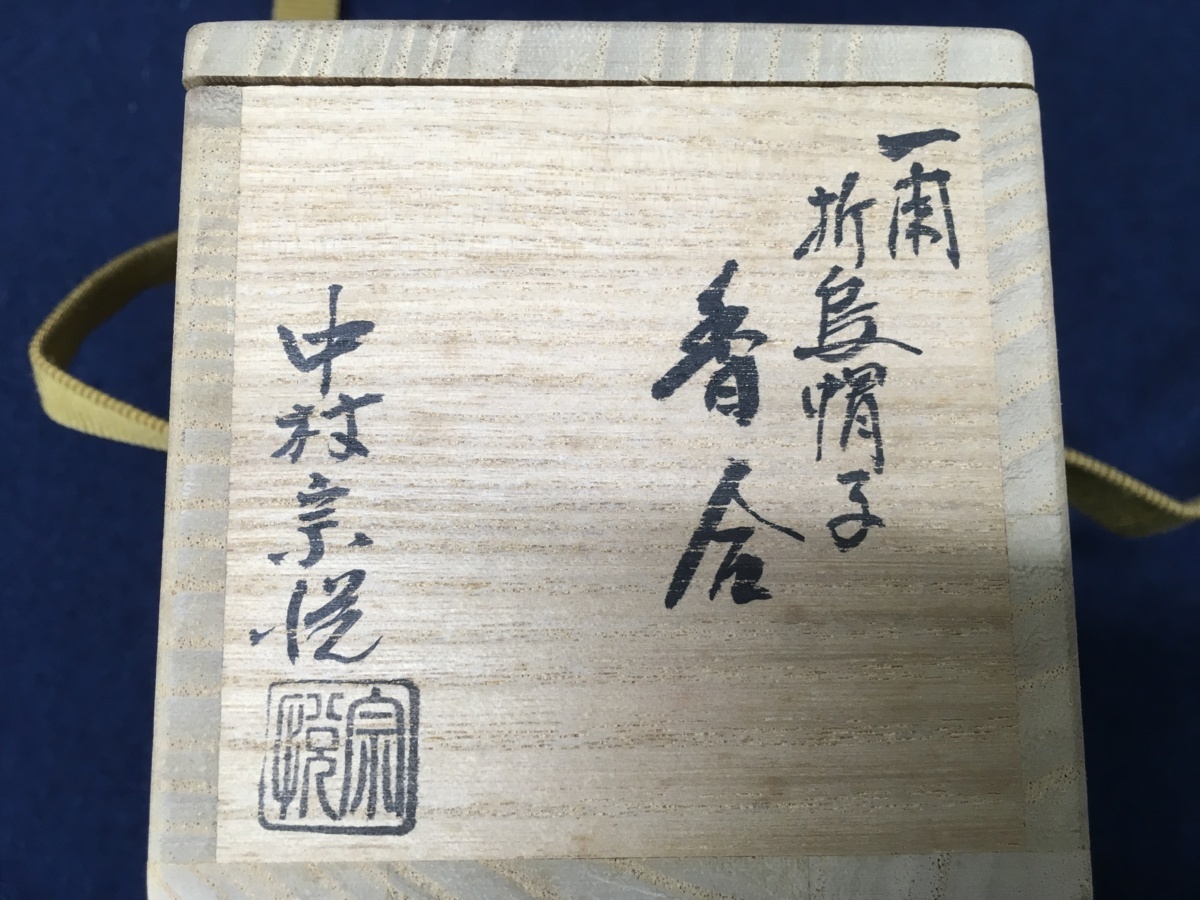 一閑
折烏帽子
香合
中村宗悦
宗悦